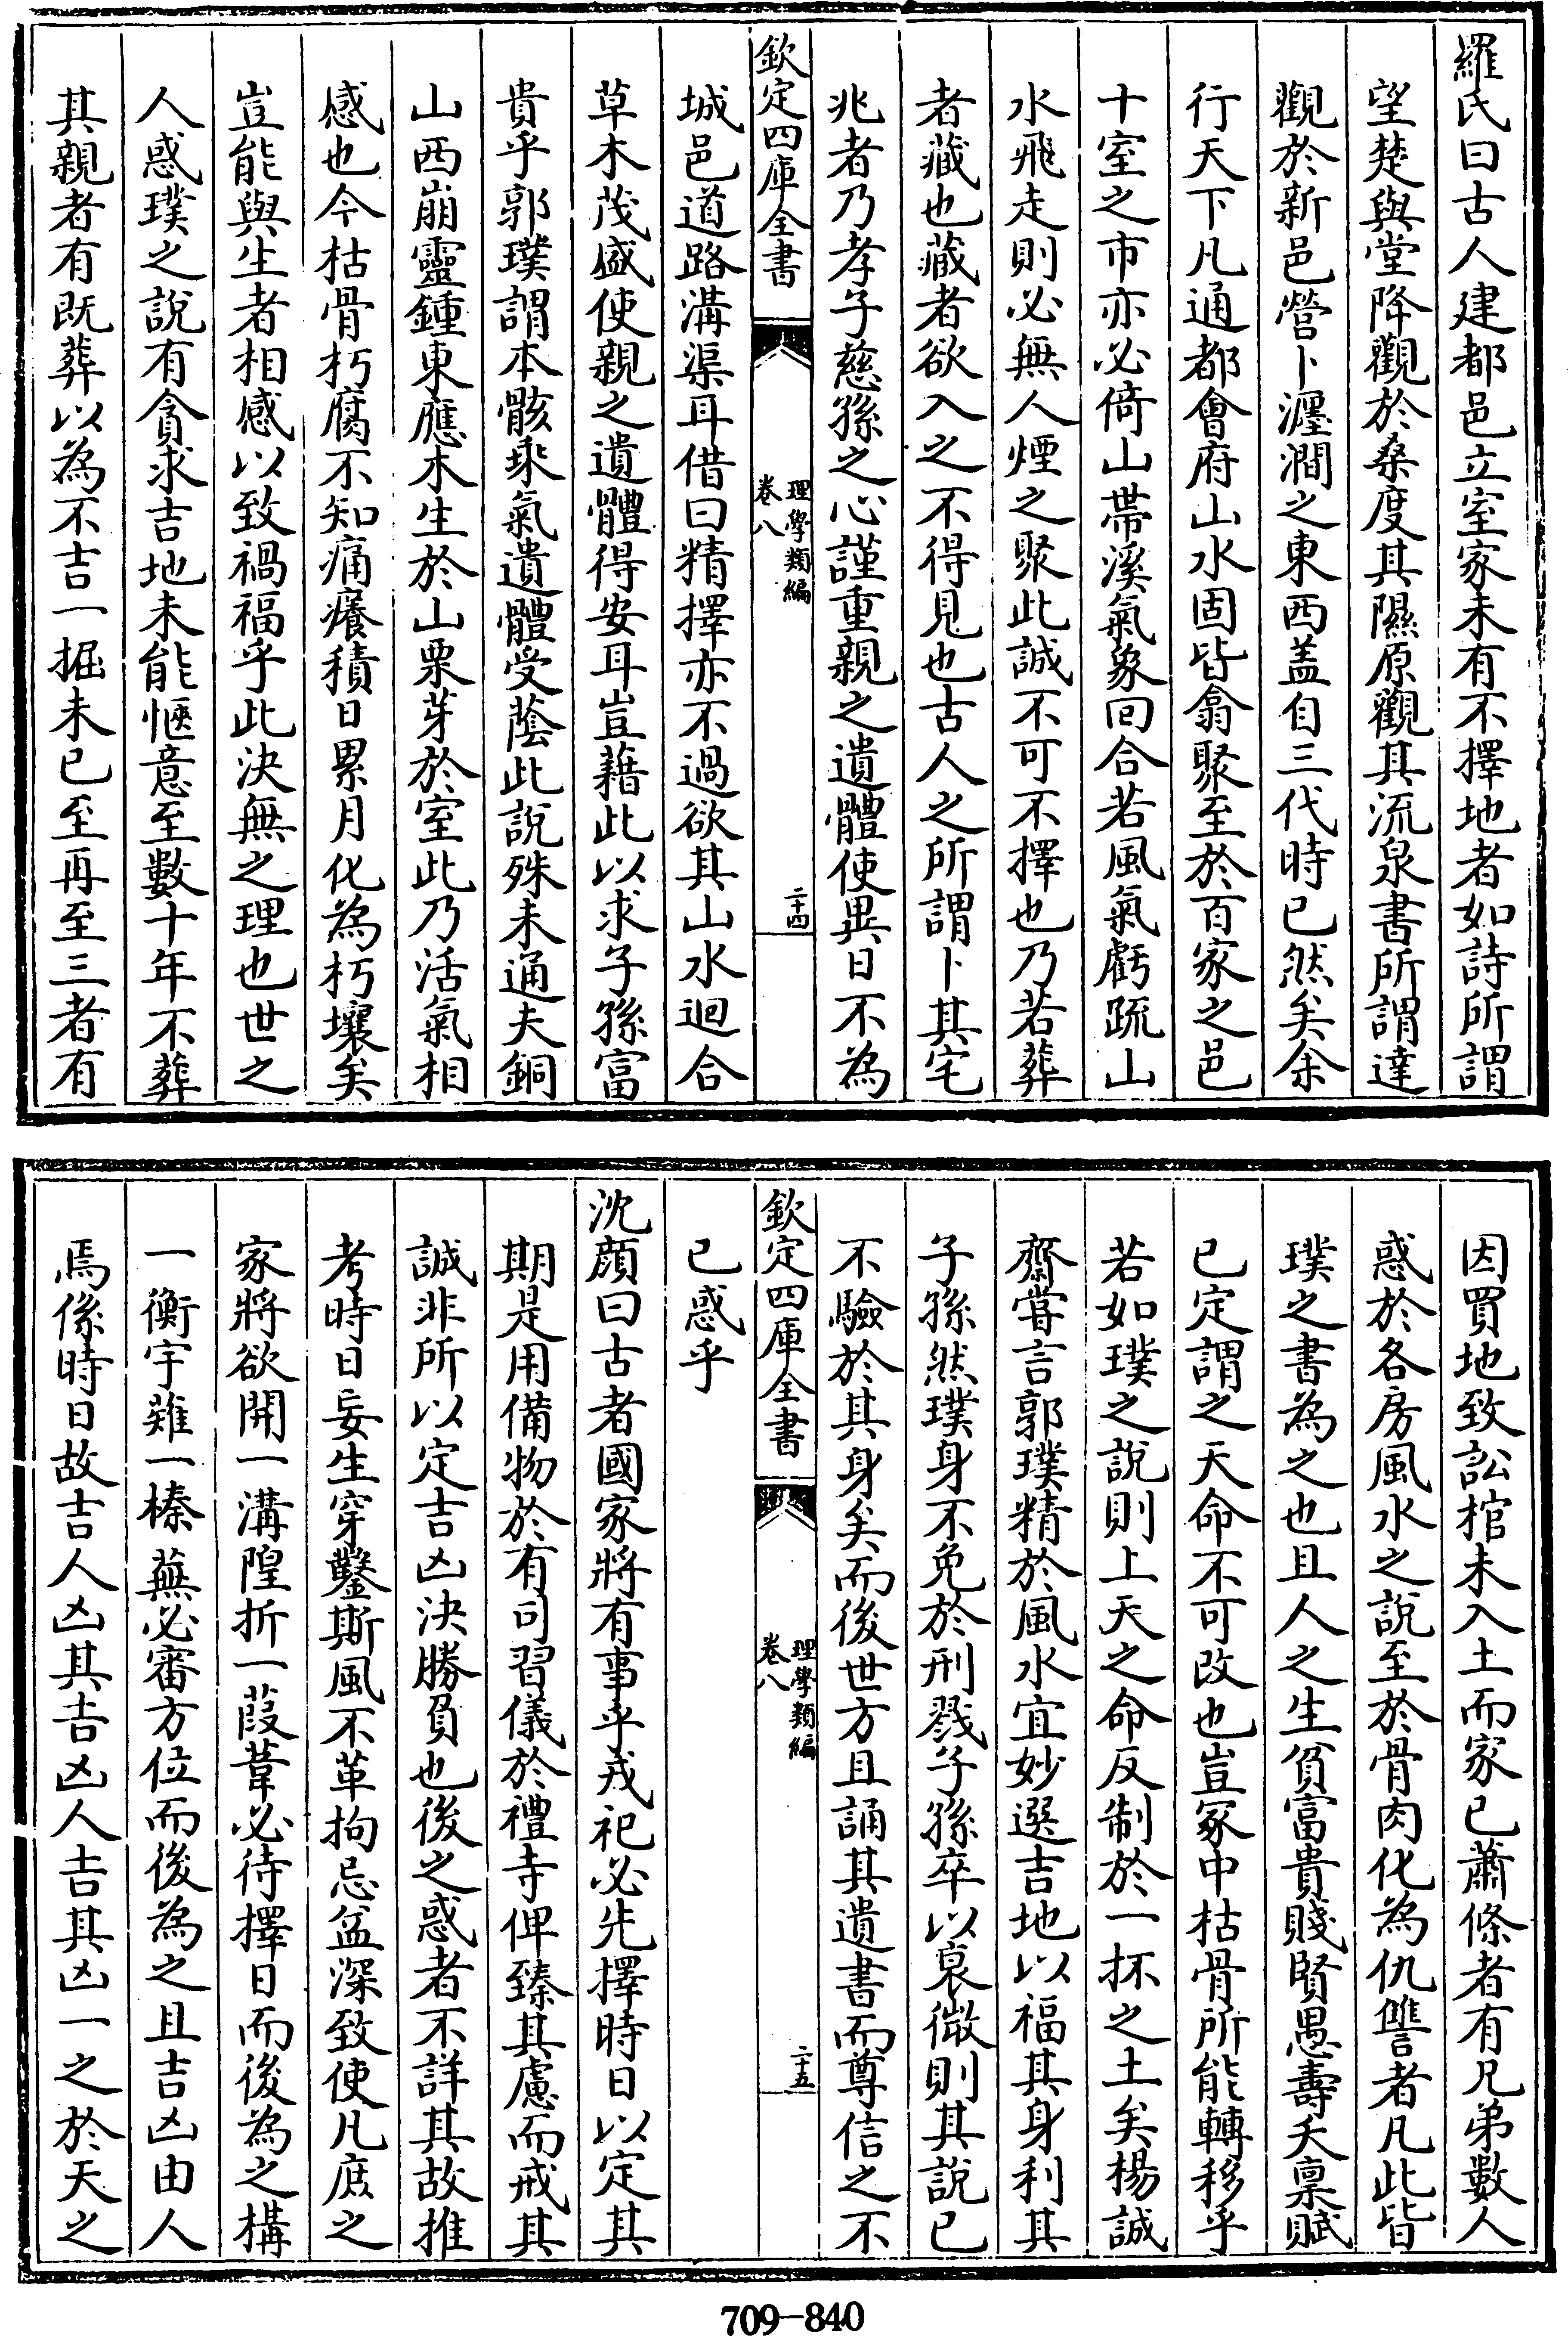 羅氏曰古人建都邑立室家未有不擇地者如詩所謂
望楚與堂降觀於桑度其隰原觀其流泉書所謂達
觀於新邑營卜瀍澗之東西盖自三代時已然矣余
行天下凡通都會府山水固皆翕聚至於百家之邑
十室之市亦必倚山帶溪氣象回合若風氣虧疏山
水飛走則必無人煙之聚此誠不可不擇也乃若葬
者藏也藏者欲入之不得見也古人之所謂卜其宅
兆者乃孝子慈孫之心謹重親之遺體使異日不為
欽定四庫全書
理學類編
卷八
二十四
城邑道路溝渠耳借曰精擇亦不過欲其山水迴合
草木茂盛使親之遺體得安耳豈藉此以求子孫富
貴乎郭璞謂本骸乘氣遺體受蔭此說殊未通夫銅
山西崩靈鍾東應木生於山栗芽於室此乃活氣相
感也今枯骨朽腐不知痛癢積日累月化為朽壤矣
豈能與生者相感以致禍福乎此決無之理也世之
人惑璞之說有貪求吉地未能愜意至數十年不葬
其親者有既葬以為不吉一掘未已至再至三者有
因買地致訟棺未入土而家已蕭條者有兄弟數人
惑於各房風水之說至於骨肉化為仇讐者凡此皆
璞之書為之也且人之生貧富貴賤賢愚壽夭稟賦
已定謂之天命不可改也豈冢中枯骨所能轉移乎
若如璞之說則上天之命反制於一抔之土矣楊誠
齋嘗言郭璞精於風水宜妙選吉地以福其身利其
子孫然璞身不免於刑戮子孫卒以衰微則其說已
不驗於其身矣而後世方且誦其遺書而尊信之不
欽定四庫全書
理學類編
卷八
二十五
已惑乎
沈顔曰古者國家將有事乎戎祀必先擇時日以定其
期是用備物於有司習儀於禮寺俾臻其慮而戒其
誠非所以定吉凶決勝負也後之惑者不詳其故推
考時日妄生穿鑿斯風不革拘忌益深致使凡庶之
家將欲開一溝隍折一葭葦必待擇日而後為之構
一衡宇薙一榛蕪必審方位而後為之且吉凶由人
焉係時日故吉人凶其吉凶人吉其凶一之於天之
709-840